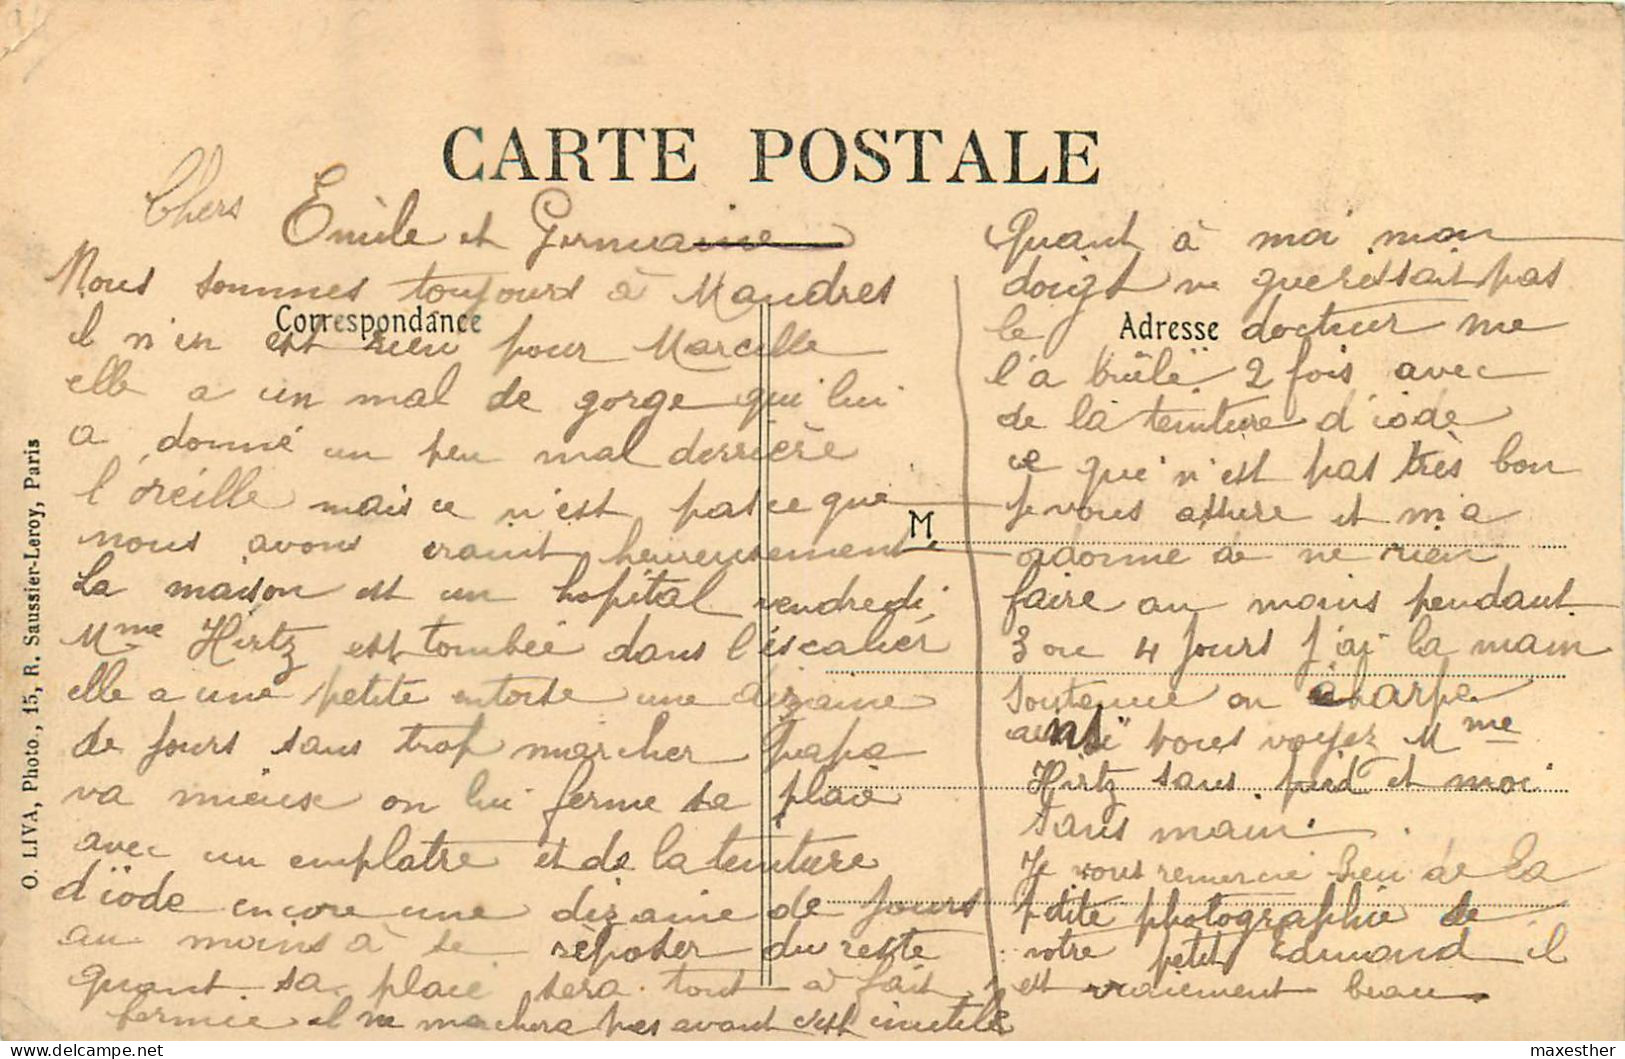 CARTE POSTALE
Chers Emile et Germaine
Nous sommes toujours à Mandres
Correspondance
il n'en est rien pour Marcelle
elle a un mal de gorge qui lui
a donné un peu mal derrière
l'oreille mais ce n'est pas ce que
nous avons craint heureusement
La maison est un hopital vendredi
Mme Hirtz est tombée dans l'escalier
elle a une petite entorse une dizaine
de jours sans trop marcher papa
va mieux on lui ferme sa plaie
avec un emplatre et de la teinture
d'ïode encore une dizaine de jours
au moins à se reposer du reste
quant sa plaie sera tout à fait
fermée il ne marchera pas avant c'est inutile
Quant à moi mon
doigt ne guerissait pas
le Adresse docteur me
l'a brûlé 2 fois avec
de la teinture d'iode
ce qui n'est pas très bon
je vous assure et m'a
M
adonné de ne rien
faire au moins pendant
3 ou 4 jours j'ai la main
soutenue en écharpe
ainsi vous voyez Mme
Hirtz sans pied et moi
sans main.
Je vous remercie bien de la
petite photographie de
votre petit Edmond il
est vraiement beau.
O. LIVA, Photo., 15, R. Saussier-Leroy, Paris
delcampe.net
maxesther